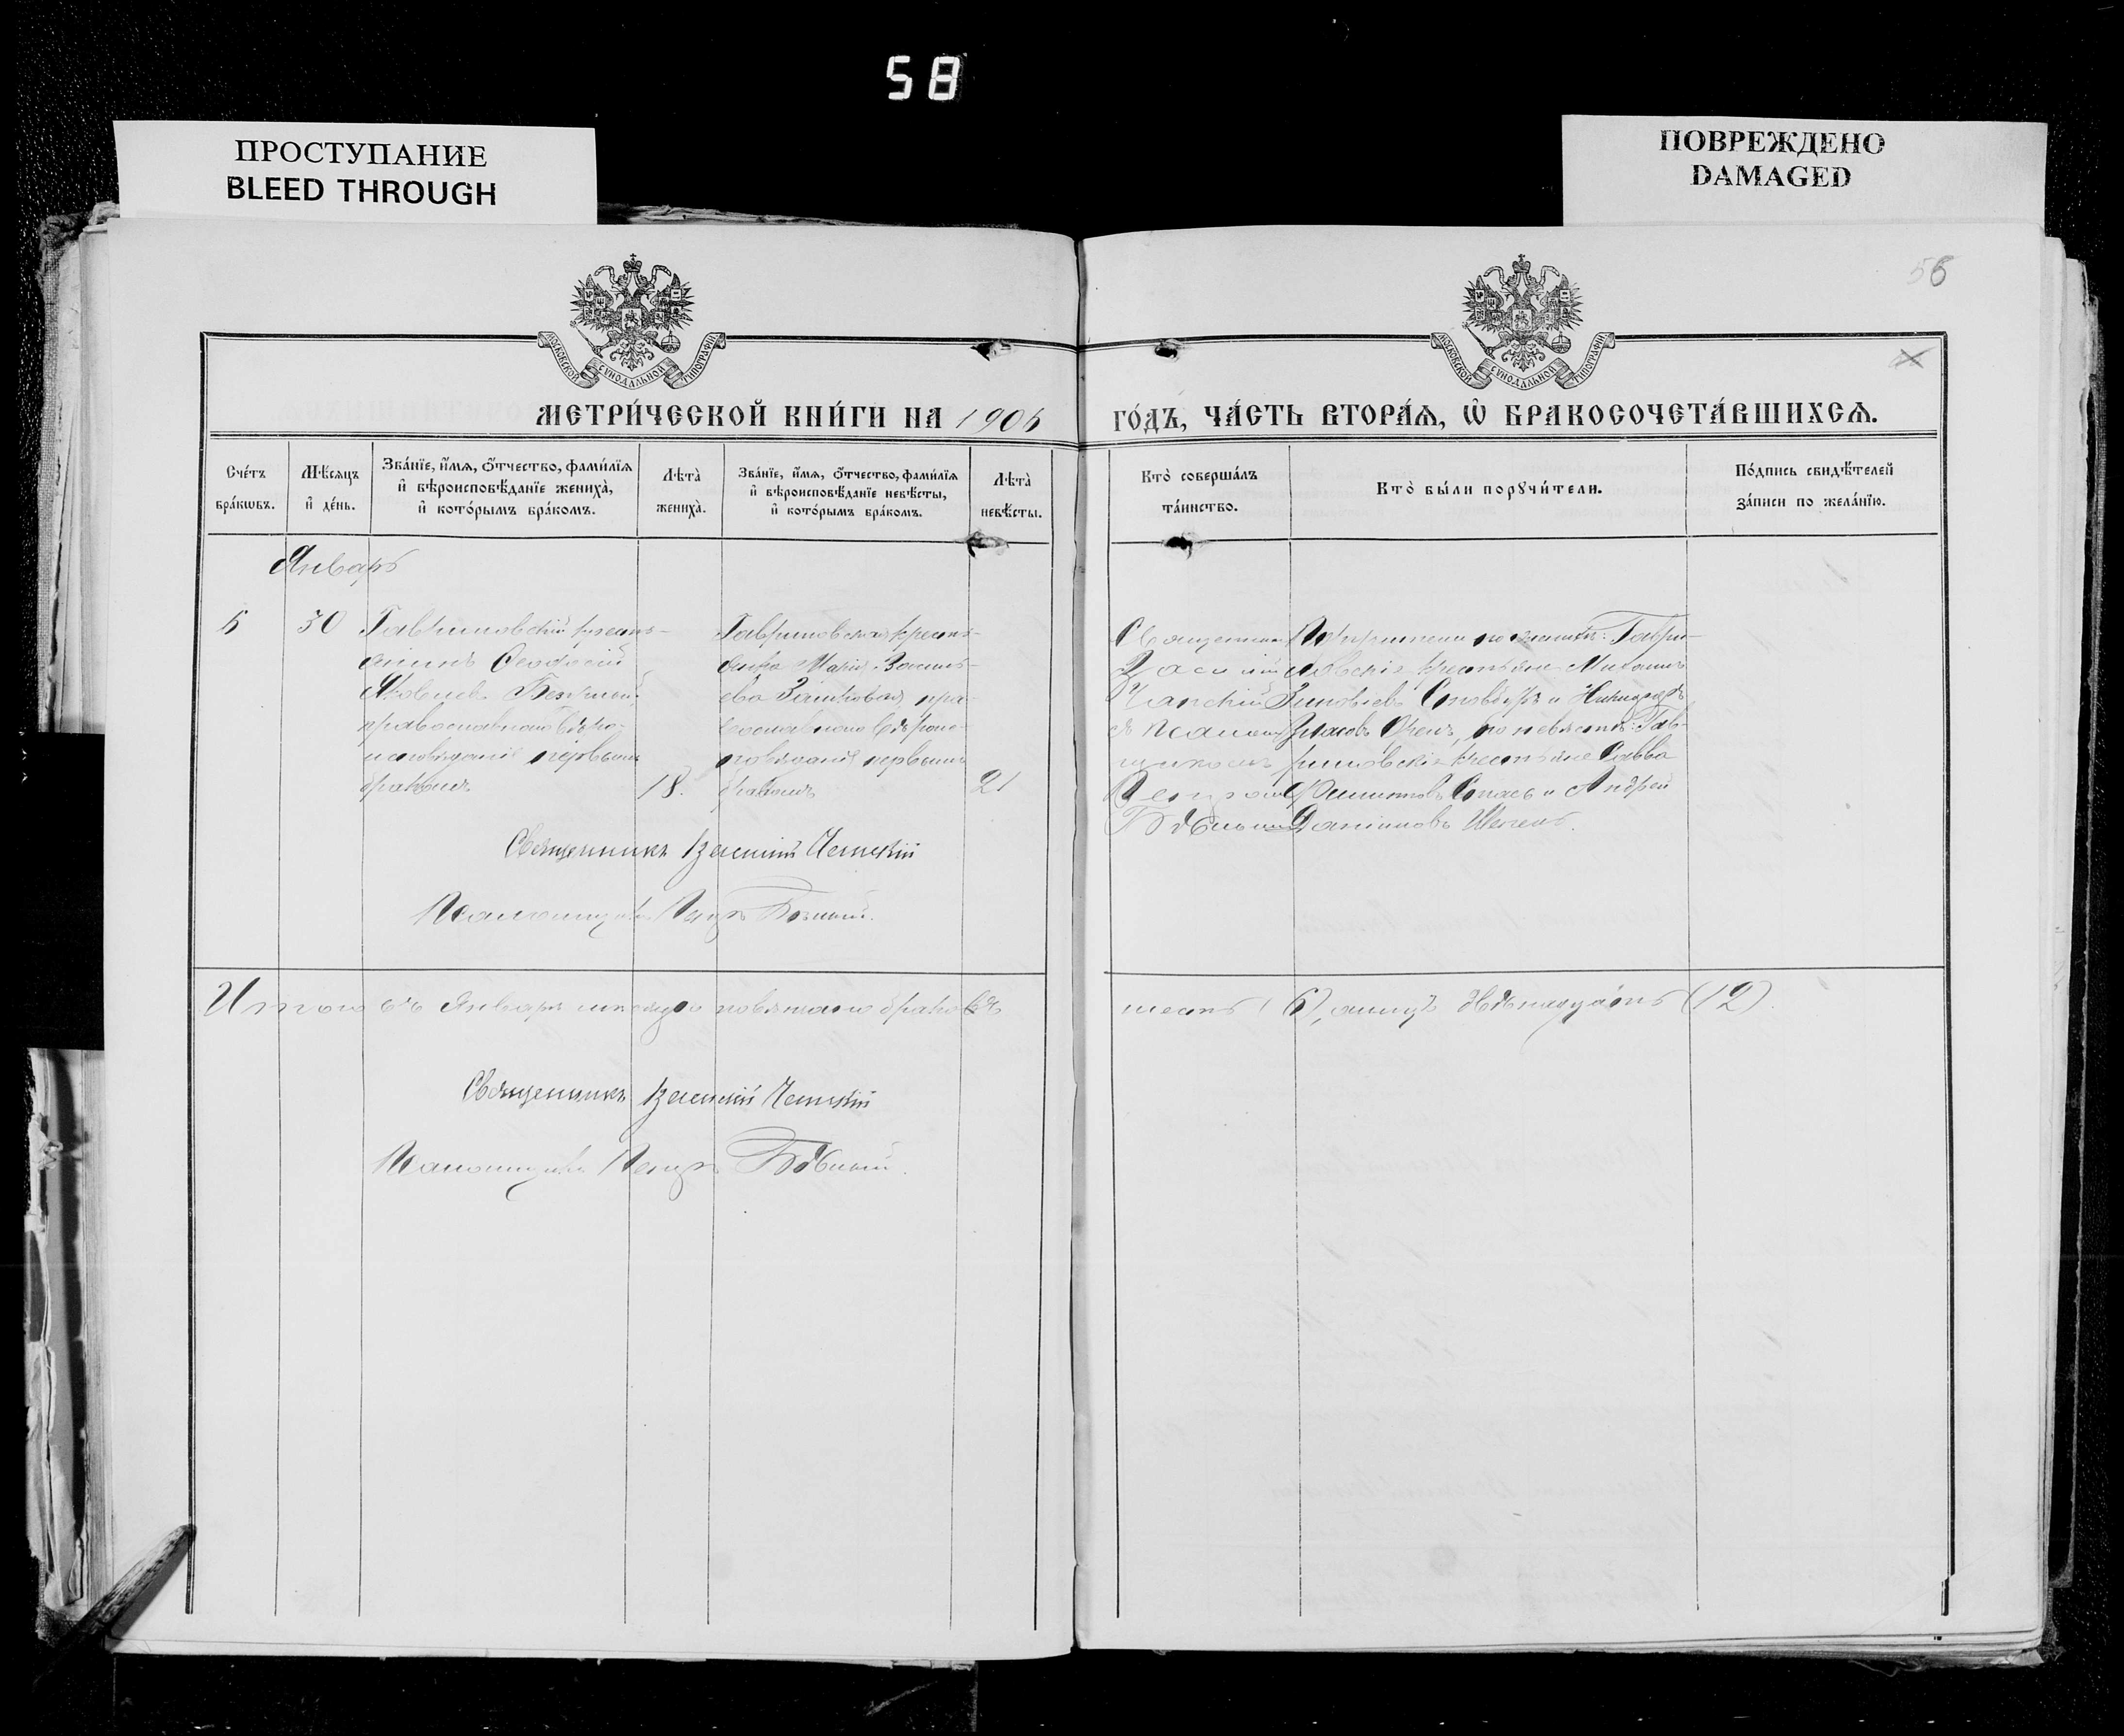 58
ПРОСТУПАНИЕ
BLEED THROUGH
ПОВРЕЖДЕНО
DAMAGED
56
МОСКОВСКОЙ СѴНОДАЛЬНОЙ ТИПОГРАФІИ
МОСКОВСКОЙ СѴНОДАЛЬНОЙ ТИПОГРАФІИ
МЕТРИ́ЧЕСКОЙ КНИ́ГИ НА 1906
ГО́ДЪ, ЧА́СТЬ ВТОРА́Я, Ѡ҆ БРАКОСОЧЕТА́ВШИХСѦ.
Сче́тъ
бра́кѡвъ.
Мѣ́сяцъ
и҆ де́нь.
Зва́нїе, и҆́мѧ, ѻ҆́тчество, фами́лїѧ
и҆ вѣроисповѣ́данїе жениха̀,
и҆ кото́рымъ бра́комъ.
Лѣта̀
жениха̀.
Зва́нїе, и҆́мѧ, ѻ҆́тчество, фами́лїѧ
и҆ вѣроисповѣ́данїе невѣ́сты,
и҆ кото́рымъ бра́комъ.
Лѣта̀
невѣ́сты.
Кто̀ соверша́лъ
та́инство.
Кто̀ бы́ли порꙋчи́тели.
По́дпись свидѣ́телей
за́писи по жела́нїю.
Январь
6
30
Гавриловскій крестья-
анинъ Ѳеодосій
Яковлевъ
православнаго вѣро-
исповѣданія первымъ
бракомъ
18.
Гавриловская крестья-
анка Марія Василь-
ева пра-
вославнаго вѣроис-
повѣданія первымъ
бракомъ
21
Священник
Василій
съ псалом
щикомъ
Петромъ
Бѣлымъ
Поручители по женихѣ: Гаври-
ловскіе крестьяне Михаилъ
Зиновіевъ и
Власовъ по невѣстѣ: Гав-
риловскіе крестьяне Савва
Филипповъ и Андрей
Даніиловъ
Священникъ Василій
Псаломщикъ Петръ Бѣлый.
Итого въ Январѣ мѣсяцѣ повѣнчано браковъ
шесть (6), лицъ двѣнадцать (12).
Священникъ Василій
Псаломщикъ Петръ Бѣлый.